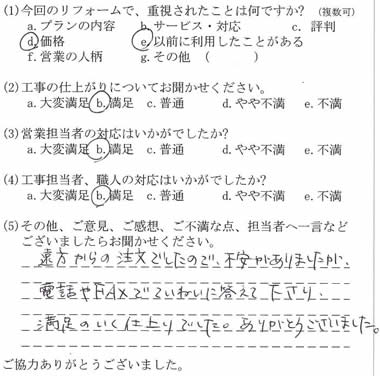 (1)今回のリフォームで、重視されたことは何ですか? (複数可)
a.プランの内容 b.サービス・対応 c. 評判
d.価格 e.以前に利用したことがある
f.営業の人柄 g.その他 ( )
(2)工事の仕上がりについてお聞かせください。
a.大変満足 b.満足 c.普通 d.やや不満 e.不満
(3)営業担当者の対応はいかがでしたか?
a.大変満足 b.満足 c.普通 d.やや不満 e.不満
(4)工事担当者、職人の対応はいかがでしたか?
a.大変満足 b.満足 c.普通 d.やや不満 e.不満
(5)その他、ご意見、ご感想、ご不満な点、担当者へ一言など
ございましたらお聞かせください。
遠方からの注文でしたので、不安がありましたが、
電話やFAXでていねいに答えて下さり、
満足のいく仕上りでした。ありがとうございました。
ご協力ありがとうございました。